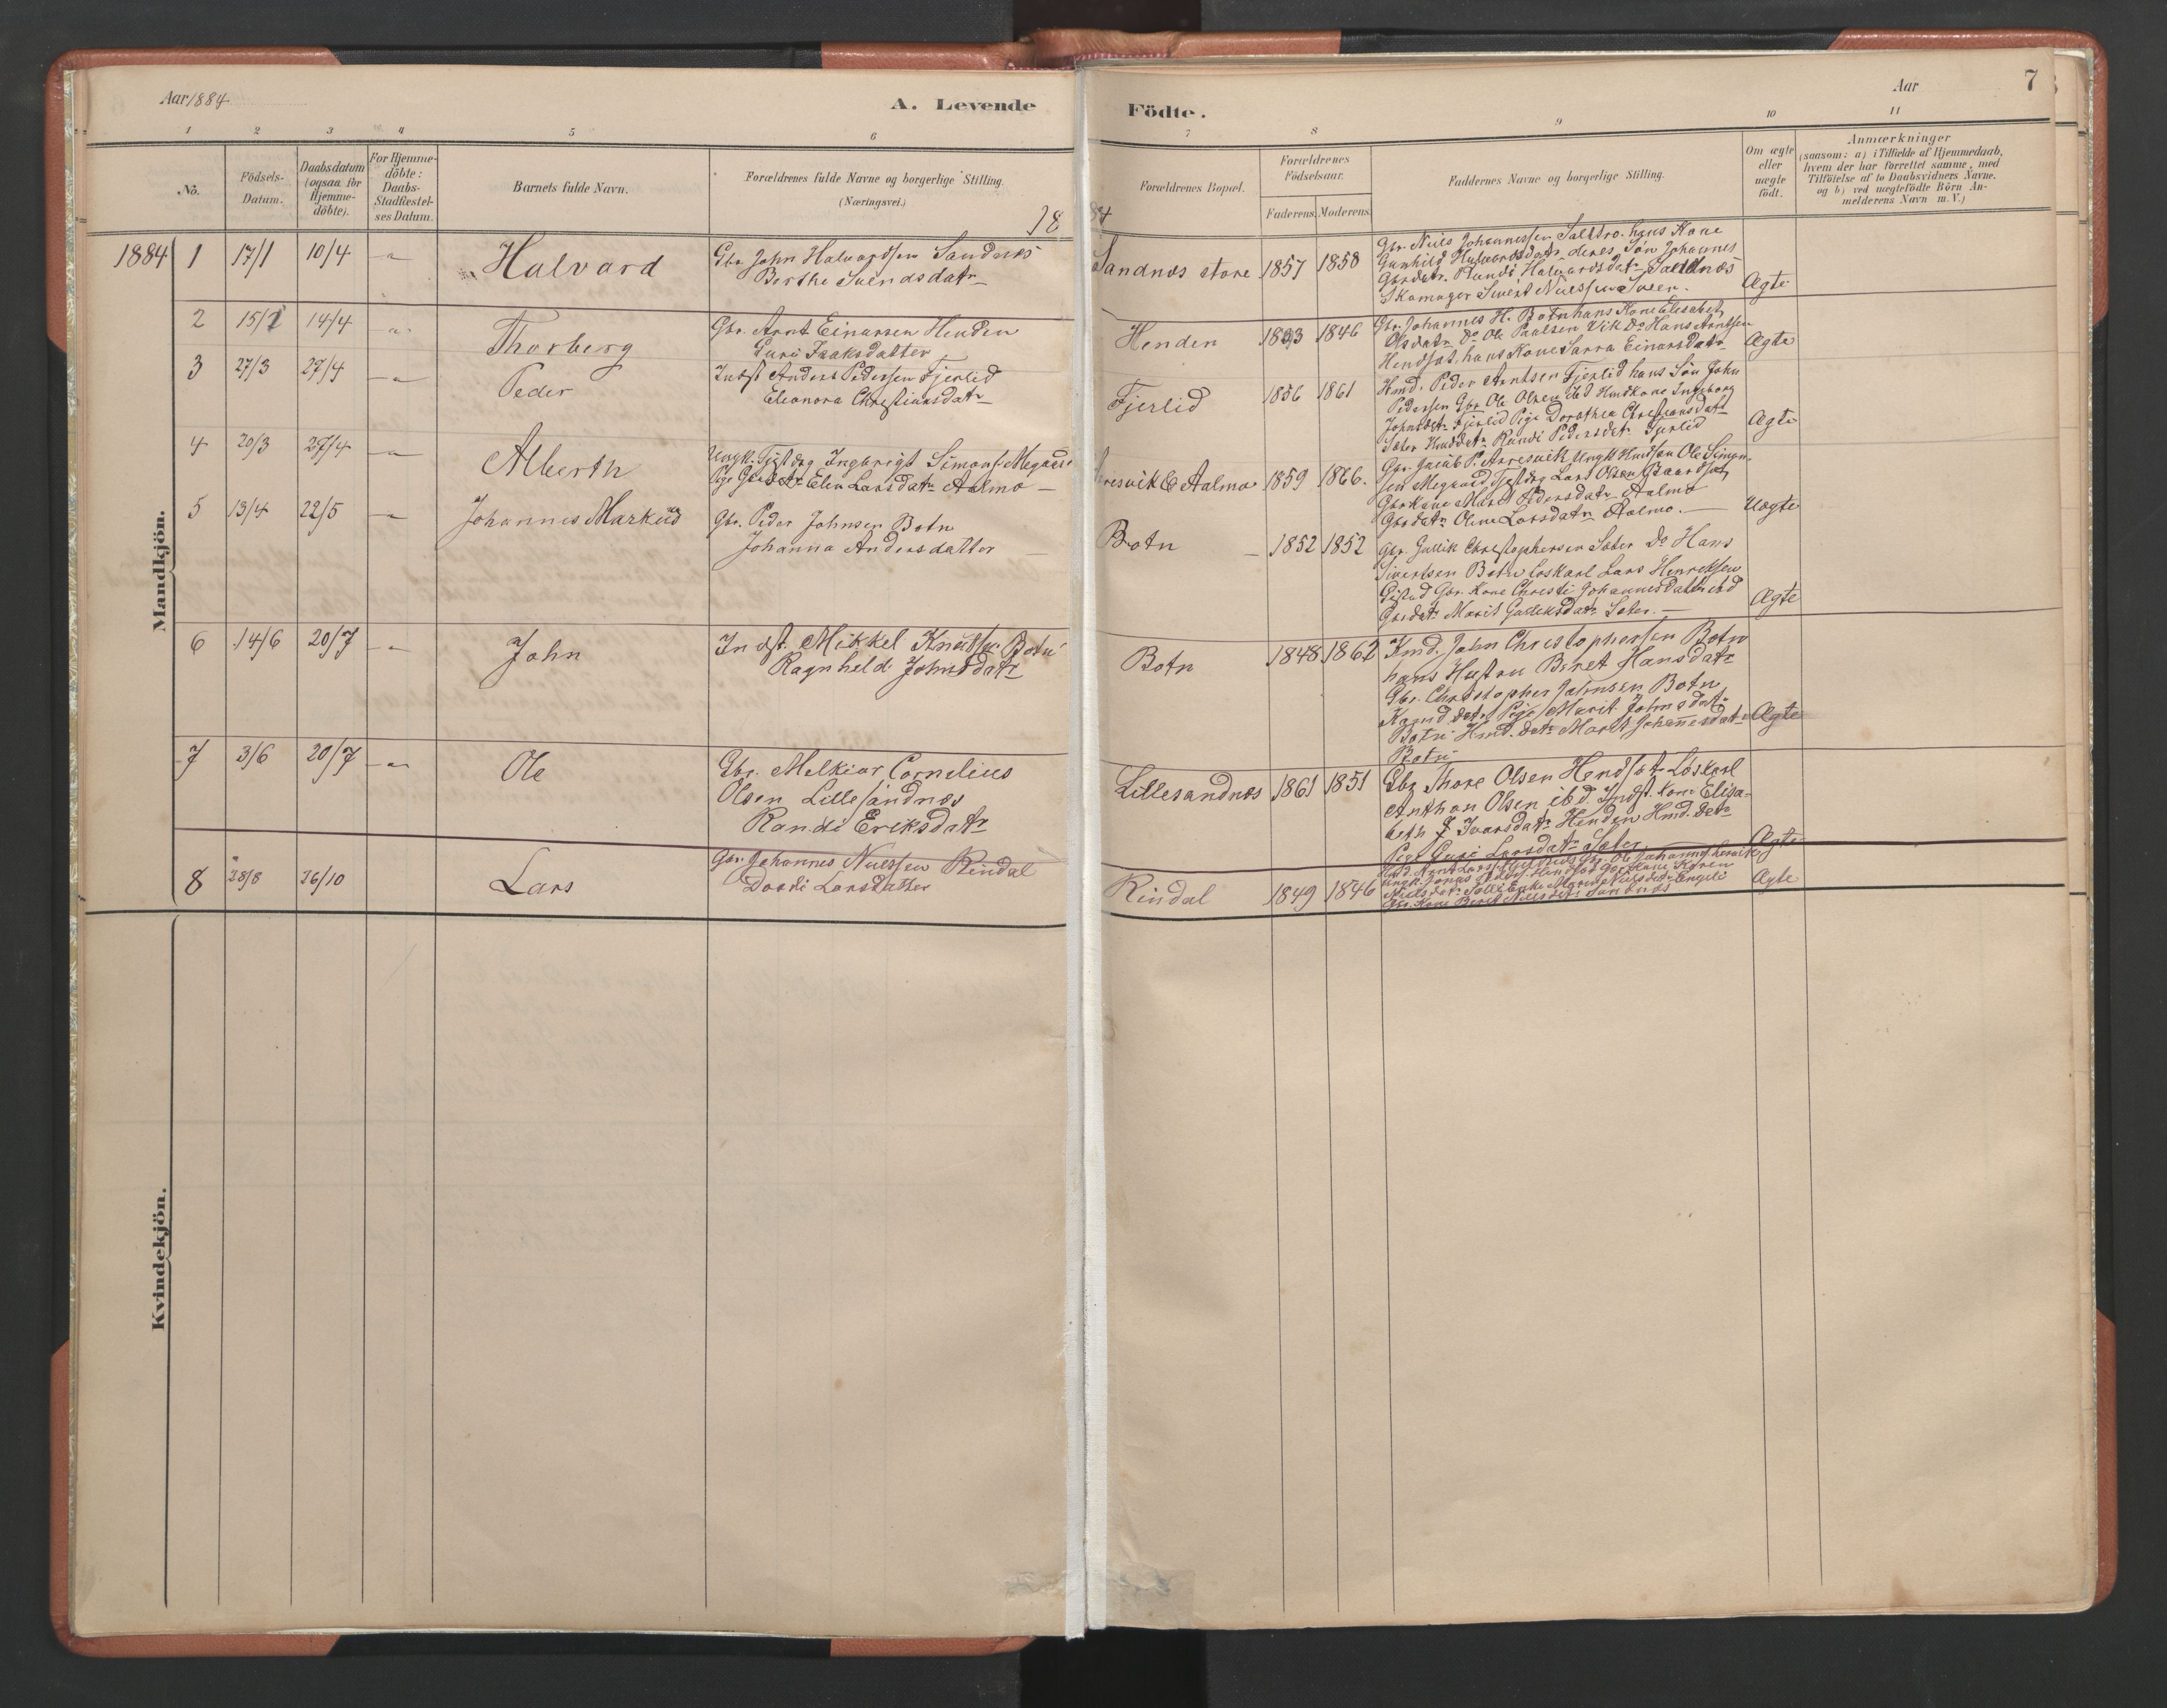 Aar 1884
A. Levende
Födte.
Aar
7
1 2 3 4 5 6 7 8 9 10 11
No.
Födsels-Datum.
Daabsdatum (ogsaa for Hjemme-döbte).
For Hjemme-döbte: Daabs-Stadfestel-ses Datum.
Barnets fulde Navn.
Forældrenes fulde Navne og borgerlige Stilling.
(Næringsvei.)
Forældrenes Bopæl.
Forældrenes Födselsaar.
Faderens. Moderens.
Faddernes Navne og borgerlige Stilling.
Om ægte eller uægte födt.
Anmærkninger
(saasom: a) i Tilfælde af Hjemmedaab,
hvem der har forrettet samme, med
Tilföielse af to Daabsvidners Navne.
og b) ved uægtefödte Börn An-
melderens Navn m. V.)
1884
Mandkjön.
1 17/1 10/4 Halvard
Gbr. John Halvardsen Sandnæs
Berthe Svendsdatr
Sandnæs store 1857 1858
Gbr. Niels Johannessen Saltrø. hans Kone
Gunhild Halvardsdatr deres Søn Johannes
Gbrdatr. Randi Halvardsdatr Sandnæs
Skomager Sivert Nielssen Sveen.
Ægte
2 15/2 14/4 Thorberg
Gbr. Arnt Einarsen Henden
Guri Isaksdatter
Henden 1846
Gbr. Johannes H. Botn hans Kone Elisabet
Olsdatr Do Ole Paulsen Vik Do Hans Arntsen
Hendsæt, hans Kone Sarra Einarsdatr
Ægte
3 27/3 27/4 Peder
Indst Anders Pedersen Fjerlid
Eleonora Christiansdatr
Fjerlid 1856 1861
Hmd. Peder Arntsen Fjerlid hans Søn John
Pedersen Gbr Ole Olsen ibd Hmdkone Ingeborg
Johnsdatr Fjerlid Pige Dorothea Christiansdatr
Sæter Hmddatr Randi Pedersdatr Fjerlid
Ægte
4 20/3 27/4 Alberth
Ungk. Tjstdrg Ingebrigt Simons. Megaard
Pige Gbrdatr Elen Larsdatr Aalmo
Arresvik & Aalmo 1859 1866.
Gbr. Jacob P. Arresvik Ungk Hmdsøn Ole Simon-
sen Megaard Tjstdrg Lars Olsen Baardset
Gbrkone Marit Pedersdatr Aalmo
Gbrdatr Oline Larsdatr Aalmo.
Uægte
5 13/4 22/5 Johannes Markus
Gbr. Peder Johnsen Botn
Johanna Andersdatter
Botn 1852 1852
Gbr. Gullik Christophersen Sæter Do Hans
Sivertsen Botn Løskarl Lars Henriksen
Gistad Gbr. Kone Christi Johannesdatter ibd
Gbrdatr Marit Gulliksdatr Sæter.
Ægte
6 14/6 20/7 John
Indst. Mikkel Knutsen Botn
Ragnhild Johnsdatr
Botn 1848 1862
Kmd. John Christophersen Botn
hans Hustru Beret Hansdatr
Gbr. Christopher Johnsen Botn
Kaarmd.datr Pige Marit Johnsdatr
Botn Hmd.datr Marit Johannesdatr
Botn
Ægte
7 3/6 20/7 Ole
Gbr. Melkior Cornelius
Olsen Lillesandnæs
Randi Eriksdatr
Lillesandnæs 1861 1851
Gbr Thore Olsen Hendsæt Løskarl
Anthon Olsen ibd. Indst. Kone Elisa-
beth Ivarsdatr Henden Hmd. Datr
Pige Guri Larsdatr Sæter
Ægte
8 28/8 26/10 Lars
Gbr. Johannes Nielssen Rindal
Dordi Larsdatter
Rindal 1849 1846
Ægte
Kvindekjön.